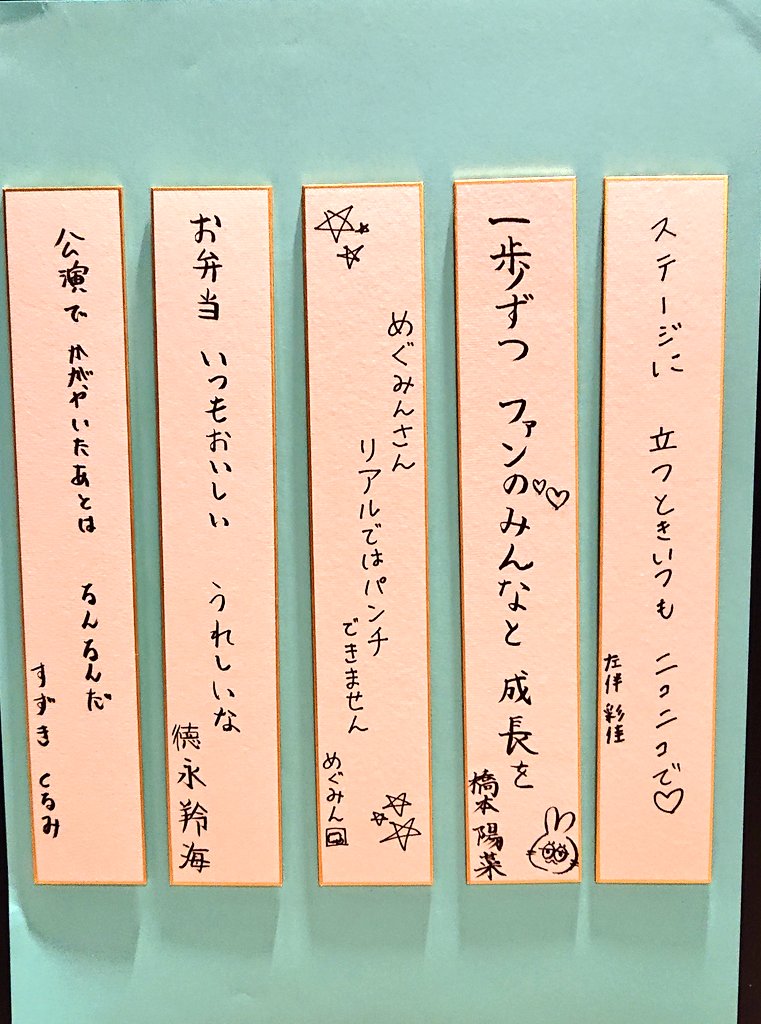 ステージに 立つときいつも ニコニコで♡
左伴 彩佳
一歩ずつ ファンのみんなと 成長を
橋本 陽菜
めぐみんさん
リアルではパンチ
できません
めぐみん
お弁当 いつもおいしい うれしいな
徳永羚海
公演で かがやいたあとは るんるんだ
すずき くるみ